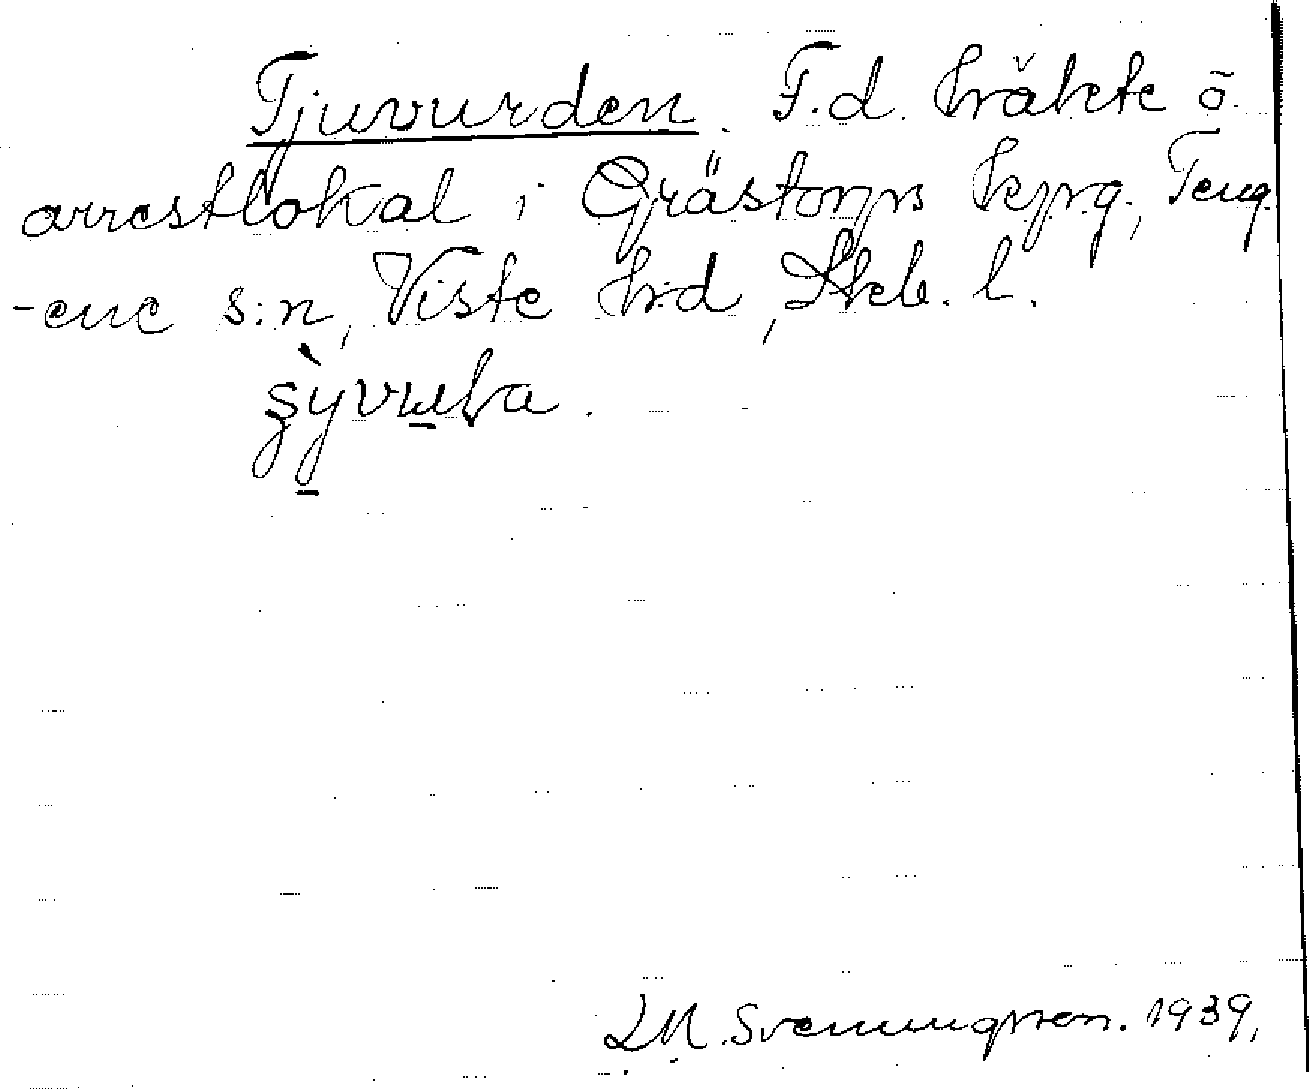 Tjuvurden. F.d. häkte o.
arrestlokal i Grästorps kpg., Teng
-ene s:n, Viste hd, Skb. l.
L.M. Svenungsson. 1939,